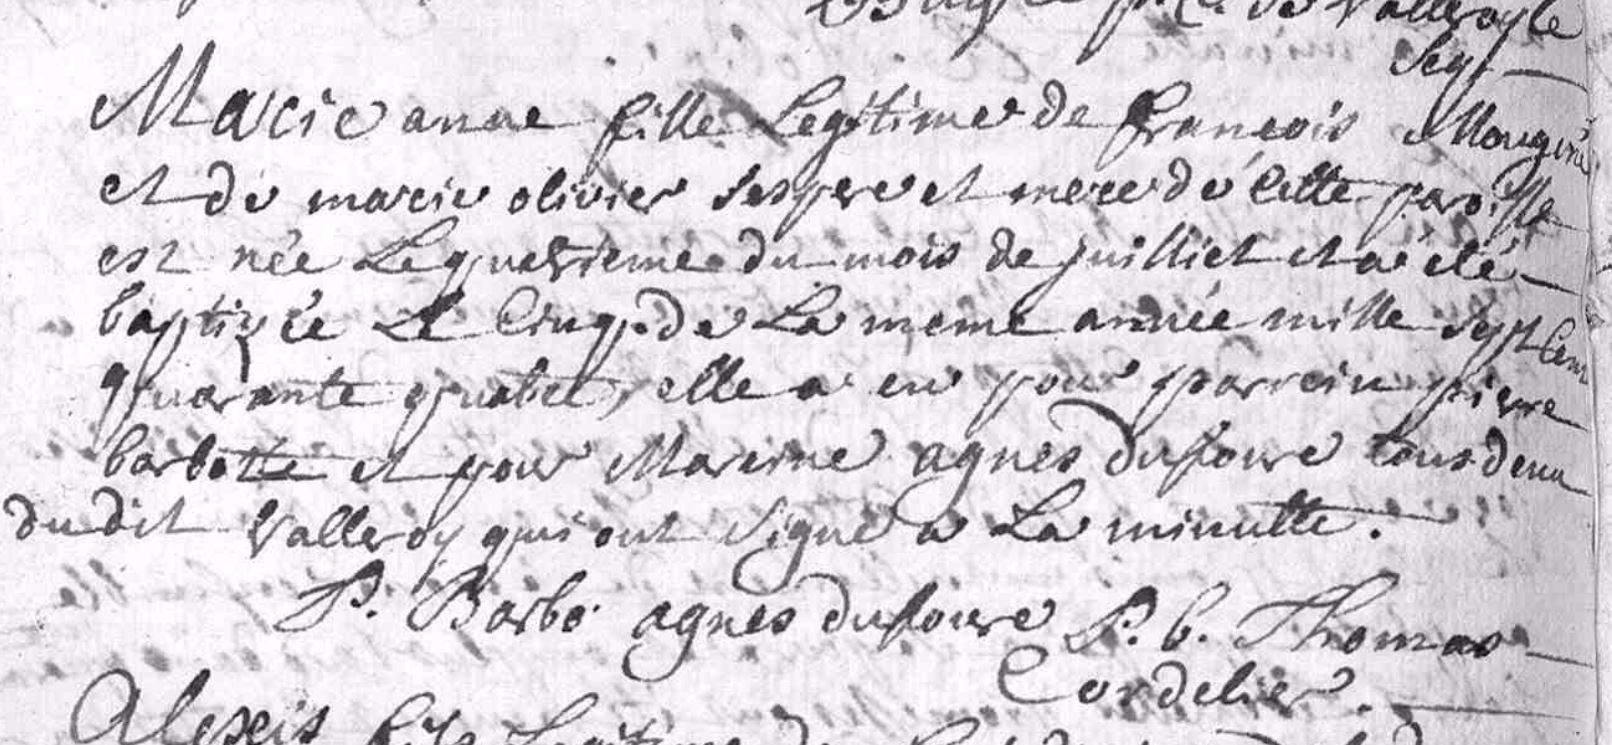 de Valleroy le
Sey
Marie anne fille Legitime de francois Mougin
et de marie olivier ses pere et mere de cette paroisse
est née Le quatrieme du mois de juilliet et a été
baptizée Le Cinq de La meme année mille sept Cent
quarante quatre, elle a eu pour parrein pierre
barbotte et pour Mareine agnes dufoure tous deux
du dit Valleroy qui ont signé a La minutte.
P. Barbo agnes dufoure P. b. Thomas
Cordelier.
Alexis fils Legitime de